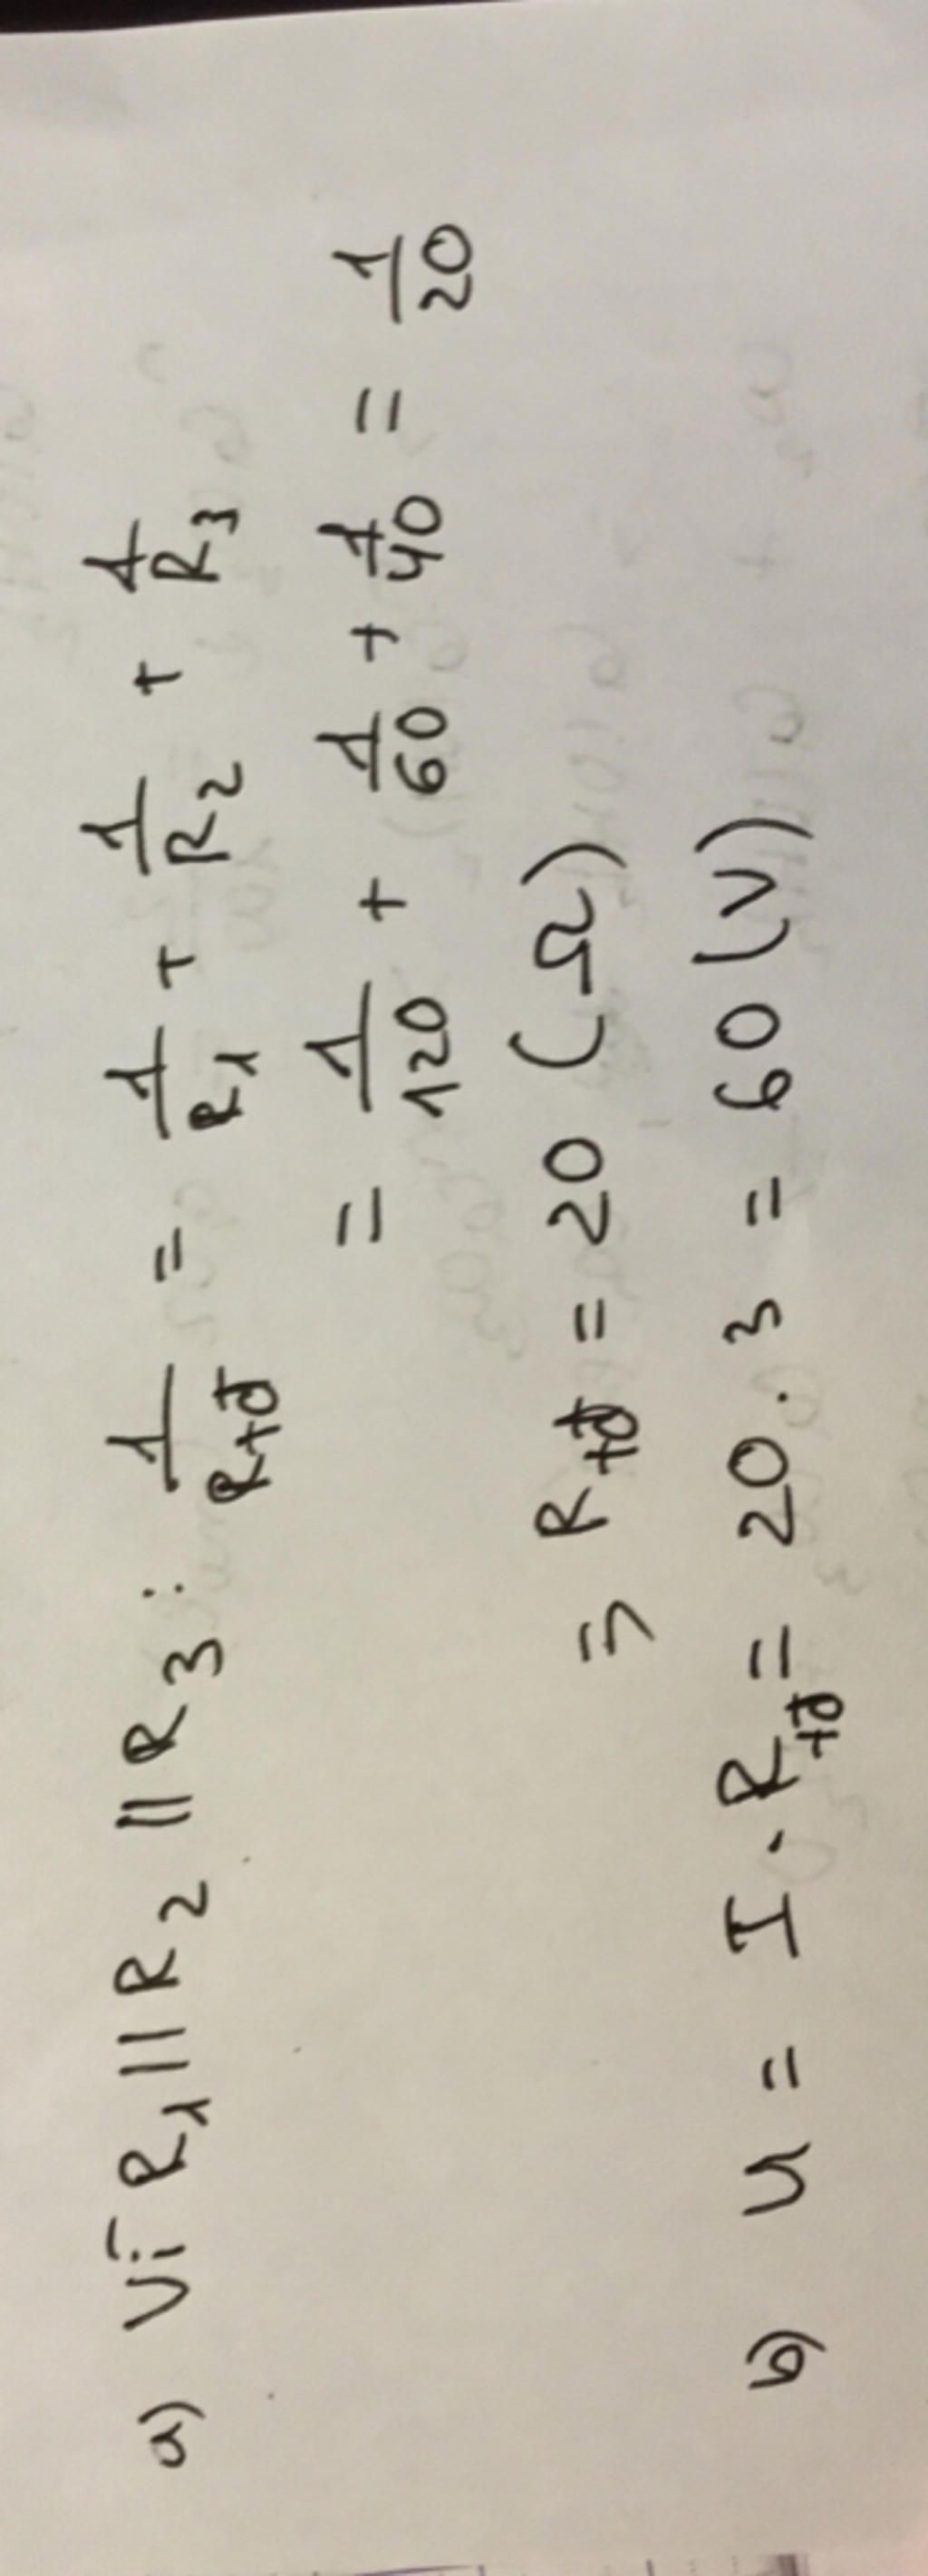 a) Vì R1 // R2 // R3 : 1/Rtđ = 1/R1 + 1/R2 + 1/R3
= 1/120 + 1/60 + 1/40 = 1/20
⇒ Rtđ = 20 (Ω)
b) U = I . Rtđ = 20 . 3 = 60 (V)